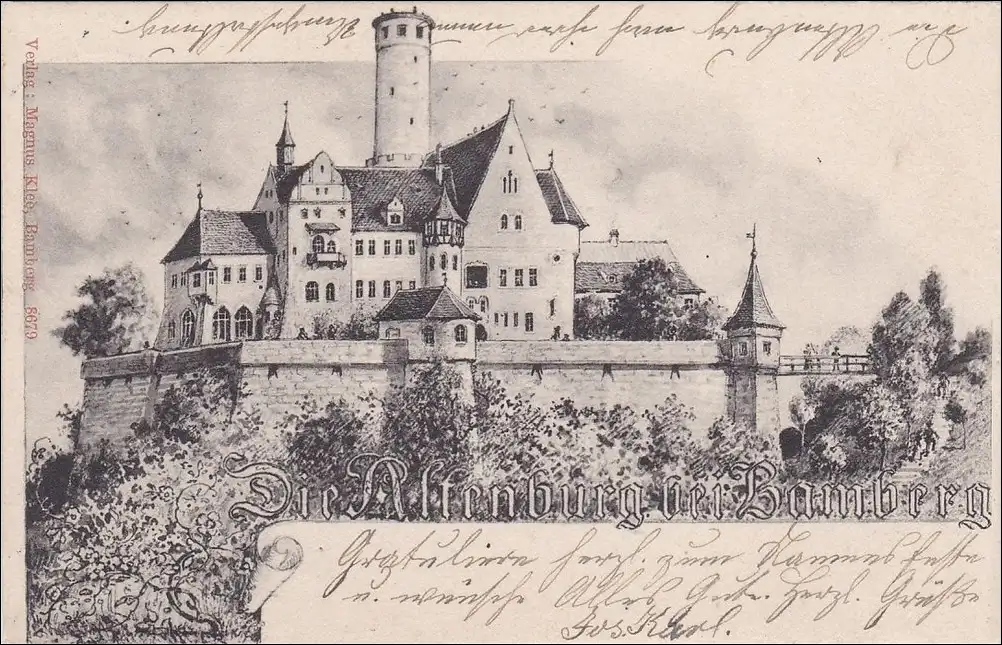 Verlag: Magnus Klee, Bamberg 8679
Die Altenburg bei Bamberg
Gratuliere herzl. zum Namensfeste
u. wünsche Alles Gute. Herzl. Grüße
Jos. Karl.